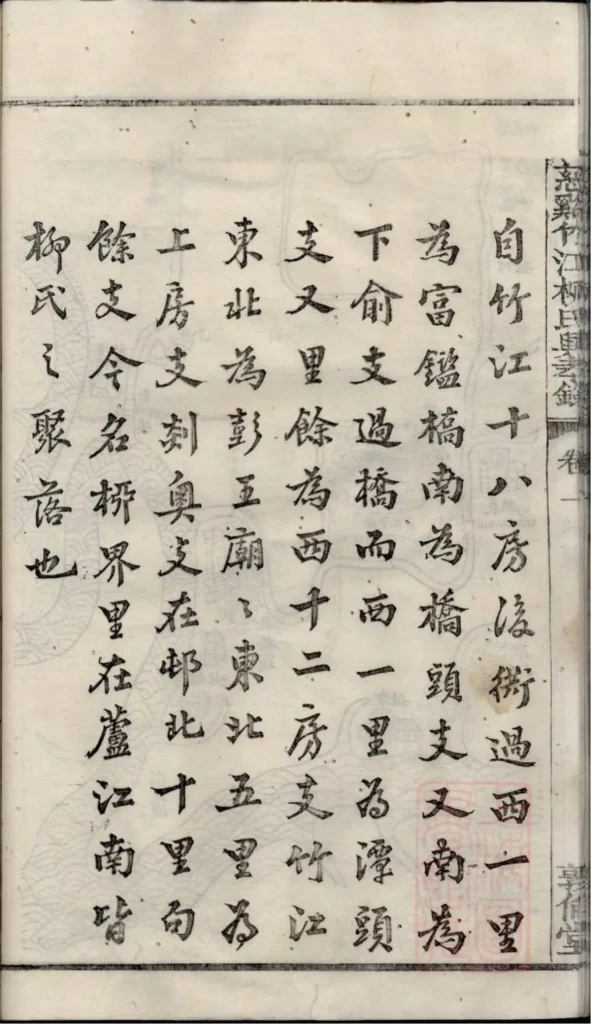 慈谿竹江柳氏錄
卷一
敦倫堂
自竹江十八房後衖過西一里
為富鑑橋南為橋頭支又南為
下俞支過橋而西一里為潭頭
支又里餘為西十二房支竹江
東北為彭王廟〻東北五里為
上房支剡奥支在邨北十里句
餘支今名桺界里在蘆江南皆
柳氏之聚落也